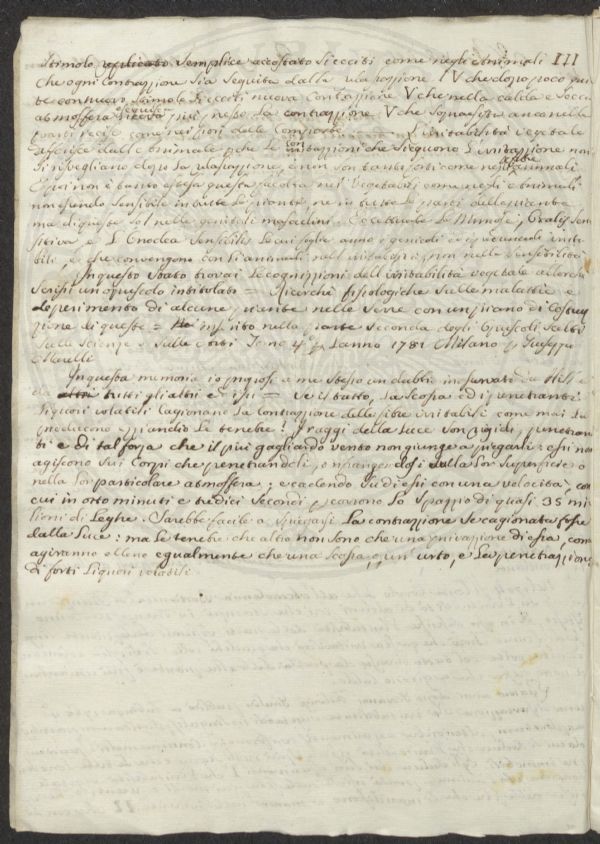 stimolo replicato semplice accostato si ecciti come negli animali III
che ogni contrazione sia seguita dalla rilassazione IV che dopo poco
continuo stimolo si ecciti nuova contrazione V che nella calda e secca
atmosfera si ecciti più spesso la contrazione V che sopravviva anco nelle
parti recise come nei fiori delle Composte L'irritabilità vegetale
differisce dalle animale pche le contrazioni che sieguono l'irritazione non
si risvegliano dopo la rilassazione, e non son tanto forti come negli animali
e poi non è tanto estesa questa facoltà nei vegetabili come negli animali
non essendo sensibile in tutte le piante, ne in tutte le parti delle piante
ma di queste sol nelle genitali mascoline. Eccettuate le Mimose, Oxalis sen-
sitiva e l'Onoclea sensibilis le cui foglie anno i genicoli ed i peduncoli irrita-
bili, e che convengono con li animali nell'irritabilità, non nella sensibilità
In questo stato trovai le cognizioni dell'irritabilità vegetale allorche
scrissi un opuscolo intitolato = Ricerche fisiologiche sulle malattie e
deperimento di alcune piante nelle serre con un piano di costru-
zione di queste = inserito nella parte seconda degli Opuscoli scelti
sulle scienze e sulle arti Tomo 4º p l'anno 1781 Milano p Giuseppe
Marelli
In questa memoria io proposi a me stesso un dubbio insuperato da Hill e
da altri tutti gli altri ed è = se il tutto, la scossa ed i penetranti
liquori volatili cagionano la contrazione delle fibre irritabili come mai la
producono eziandio le tenebre? I raggi della luce son rigidi, penetran-
ti e di tal forza che il più gagliardo vento non giunge a piegarli: essi non
agiscono sui corpi che penetrandoli, o infrangendosi sulla lor superficie o
nella lor particolare atmosfera; e cadendo su di essi con una velocità, con
cui in otto minuti e tredici secondi percorrono lo spazzo di quasi 35 mi-
lioni di leghe. Sarebbe facile a spiegarsi la contrazione se cagionata fosse
dalla luce: ma le tenebre che altro non sono che una privazione di essa, com
agiranno elleno egualmente che una scossa, o un urto, e la penetrazione
di forti liquori volatili